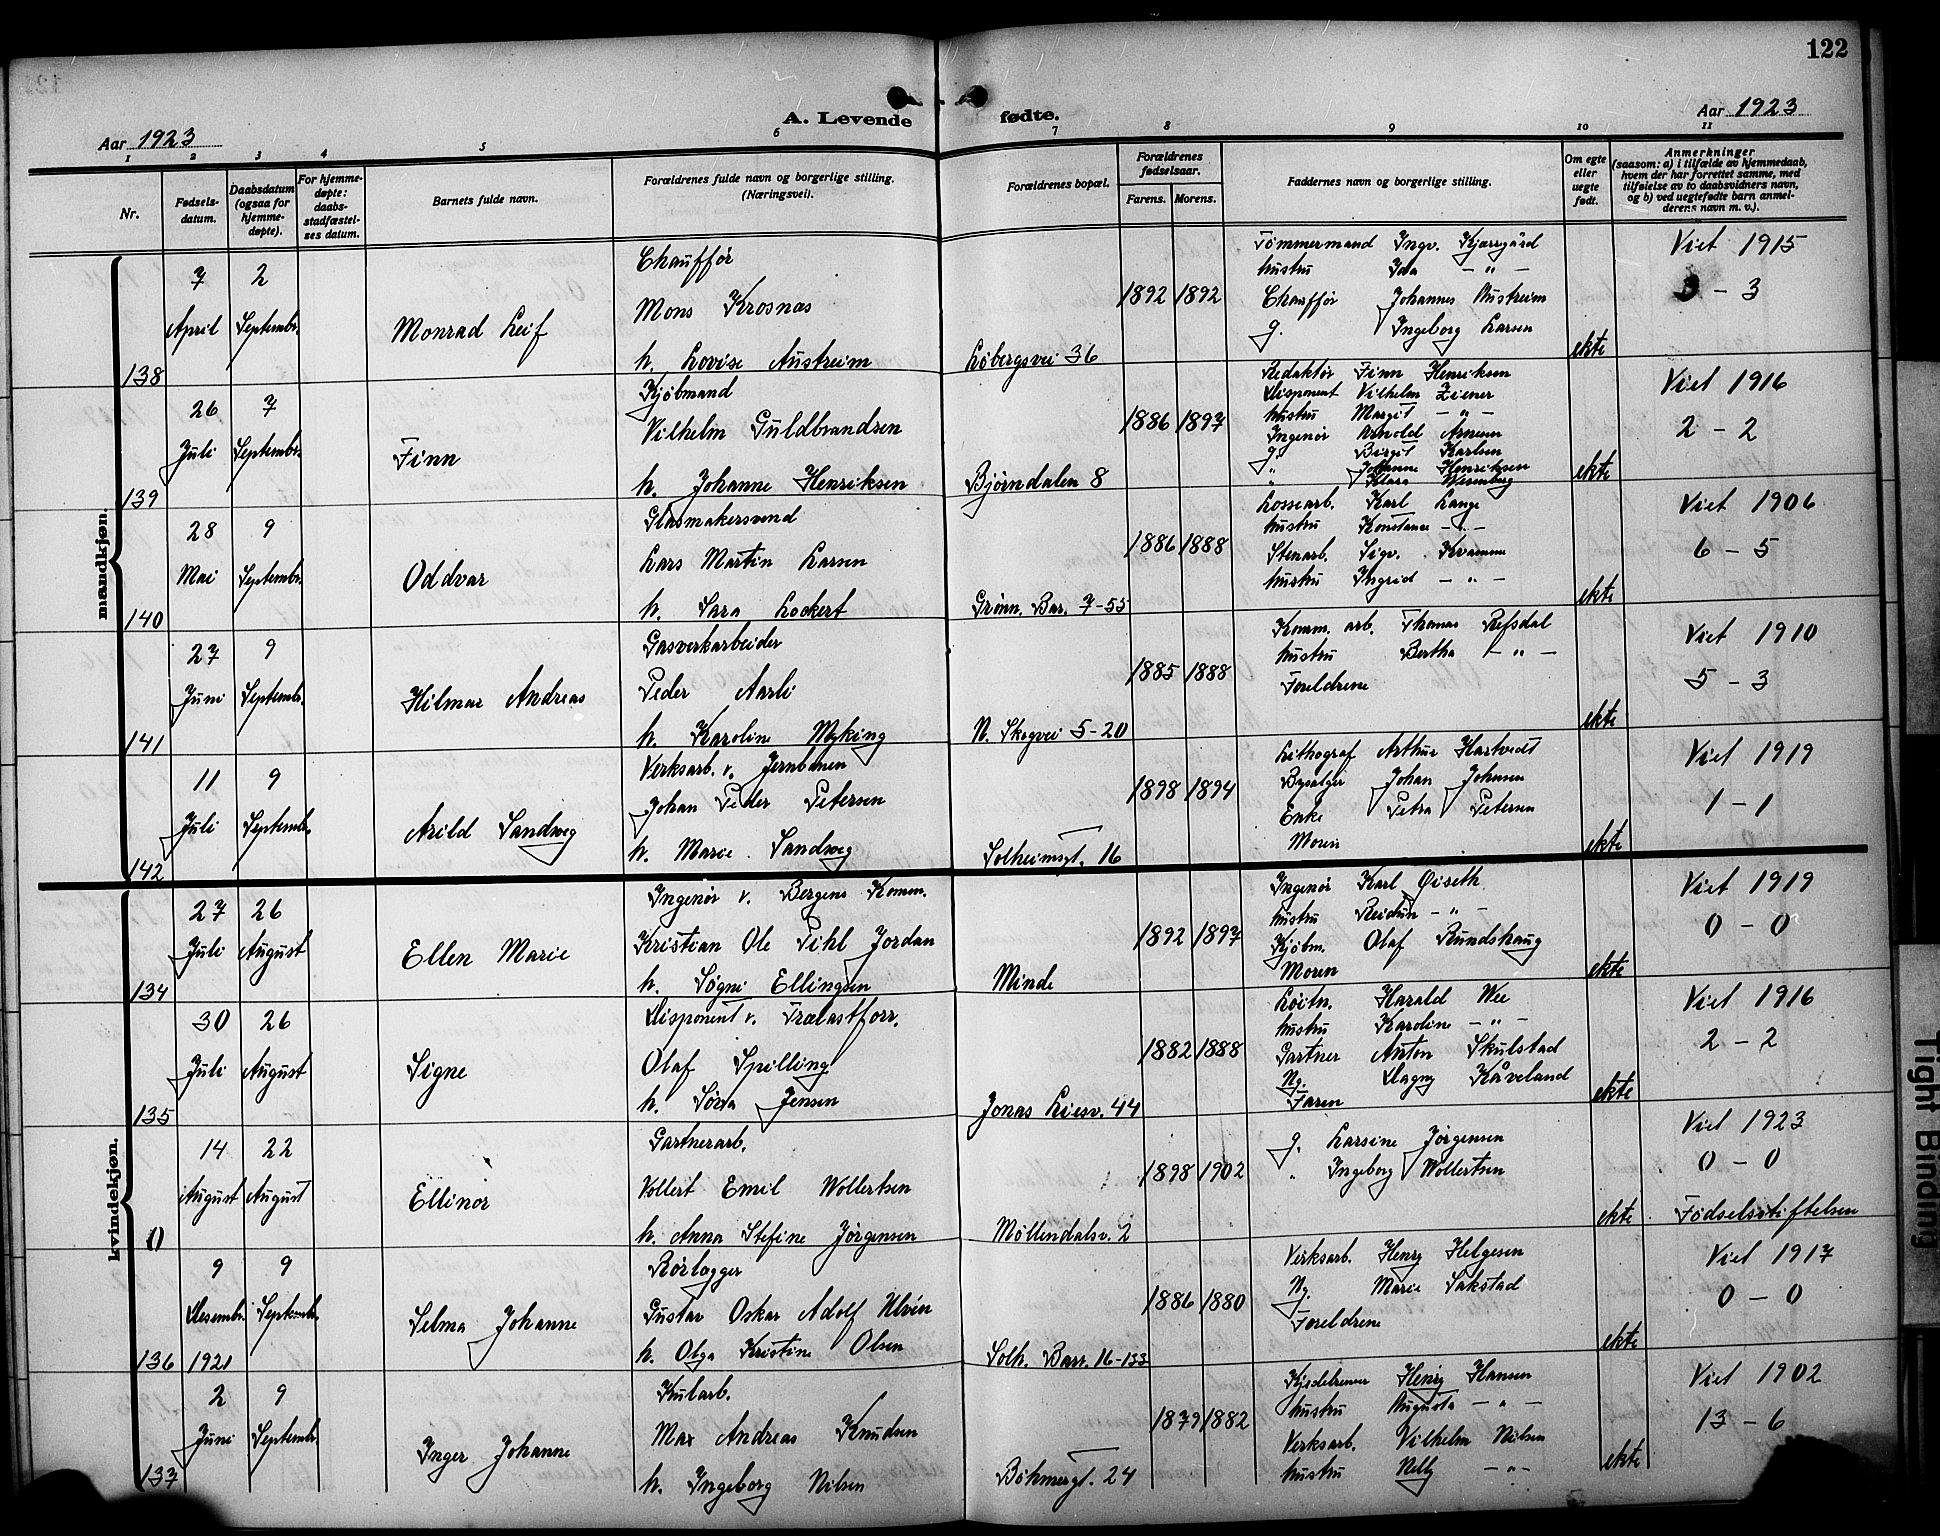 122
Aar 1923
A. Levende fødte.
Aar 1923
1 2 3 4 5 6 7 8 9 10 11
Nr.
Fødsels-
datum.
Daabsdatum
(ogsaa for
hjemme-
døpte).
For hjemme-
døpte:
daabs-
stadfæstel-
ses datum.
Barnets fulde navn.
Forældrenes fulde navn og borgerlige stilling.
(Næringsvei).
Forældrenes bopæl.
Forældrenes
fødselsaar.
Farens. Morens.
Faddernes navn og borgerlige stilling.
Om egte
eller
uegte
født.
Anmerkninger
(saasom: a) i tilfælde av hjemmedaab,
hvem der har forrettet samme, med
tilføielse av to daabsvidners navn,
og b) ved uegtefødte barn anmel-
derens navn m. v.).
mandkjøn.
138
7 April
2 Septembr.
Monrad Leif
Chauffør
Mons Krosnas
h. Lovise Austreim
Løbergsvei 36
1892 1892
Tømmermand Ingv. Kjærrgård
hustru Ida — " —
Chauffør Johannes Austreim
g. Ingeborg Larsen
ekte
Viet 1915
3 - 3
139
26 Juli
7 Septembr.
Finn
Kjøbmand
Vilhelm Guldbrandsen
h. Johanne Henriksen
Bjørndalen 8
1886 1897
Redaktør Finn Henriksen
Disponent Vilhelm Ziener
hustru Margit — " —
Ingenør Arnold
g. Birgit Karlsen
" Johanne Henriksen
" Klara Wesenberg
ekte
Viet 1916
2 - 2
140
28 Mai
9 Septembr.
Oddvar
Glasmakersvend
Lars Martin Larsen
h. Sara Lockert
Grønn. Bar. 7-55
1886 1888
Lossearb. Karl Lange
hustru Konstanse — " —
Stenarb. Sigv. Kvamme
hustru Ingrid — " —
ekte
Viet 1906
6 - 5
141
27 Juni
9 Septembr.
Hilmar Andreas
Gasverkarbeider
Peder Aarli
h. Karoline Myking
N. Skogvei 5-20
1885 1888
Komm. arb. Thomas Refsdal
hustru Bertha — " —
Foreldrene
ekte
Viet 1910
5 - 3
142
11 Juli
9 Septembr.
Arild Sandweg
Verksarb. v. Jernbanen
Johan Peder Petersen
h. Marie Sandweg
Solheimsgt. 16
1898 1894
Lithograf Arthur Hartvedt
Bysælger Johan Johnsen
Enke Petra Petersen
Moren
ekte
Viet 1919
1 - 1
kvindekjøn.
134
27 Juli
26 August
Ellen Marie
Ingenør v. Bergens Komm.
Kristian Ole Pihl Jordan
h. Søgni Ellingsen
Minde
1892 1897
Ingenør Karl Øiseth
hustru Reidun — " —
Kjøbm. Olaf Rundshaug
Moren
ekte
Viet 1919
0 - 0
135
30 Juli
26 August
Signe
Disponent v. Trælastforr.
Olaf Spilling
h. Søva Jensen
Jonas Liesv. 44
1882 1888
Løitn. Harald Wee
hustru Karoline — " —
Gartner Anton Skulstad
Ng. Dagny Kåveland
Faren
ekte
Viet 1916
2 - 2
0
14 August
22 August
Ellinor
Gartnerarb.
Vollert Emil Wollertsen
h. Anna Stefine Jørgensen
Møllendalsv. 2
1898 1902
g. Larsine Jørgensen
" Ingeborg Wollertsen
ekte
Viet 1923
0 - 0
Fødselsstiftelsen
136
9 Desembr. 1921
9 Septembr.
Selma Johanne
Rørlægger
Gustav Oskar Adolf Ulvin
h. Olga Kristine Olsen
Solh. Barr. 16-133
1886 1880
Verksarb. Henry Helgesen
Ng. Marie Sakstad
Foreldrene
ekte
Viet 1917
0 - 0
137
2 Juni
9 Septembr.
Inger Johanne
Kularb.
Max Andreas Knudsen
h. Ingeborg Nilsen
Bøhmergt. 24
1879 1882
Henry Hansen
hustru Augusta — " —
Verksarb. Vilhelm Nilsen
hustru Nelly — " —
ekte
Viet 1902
13 - 6
Tight Binding